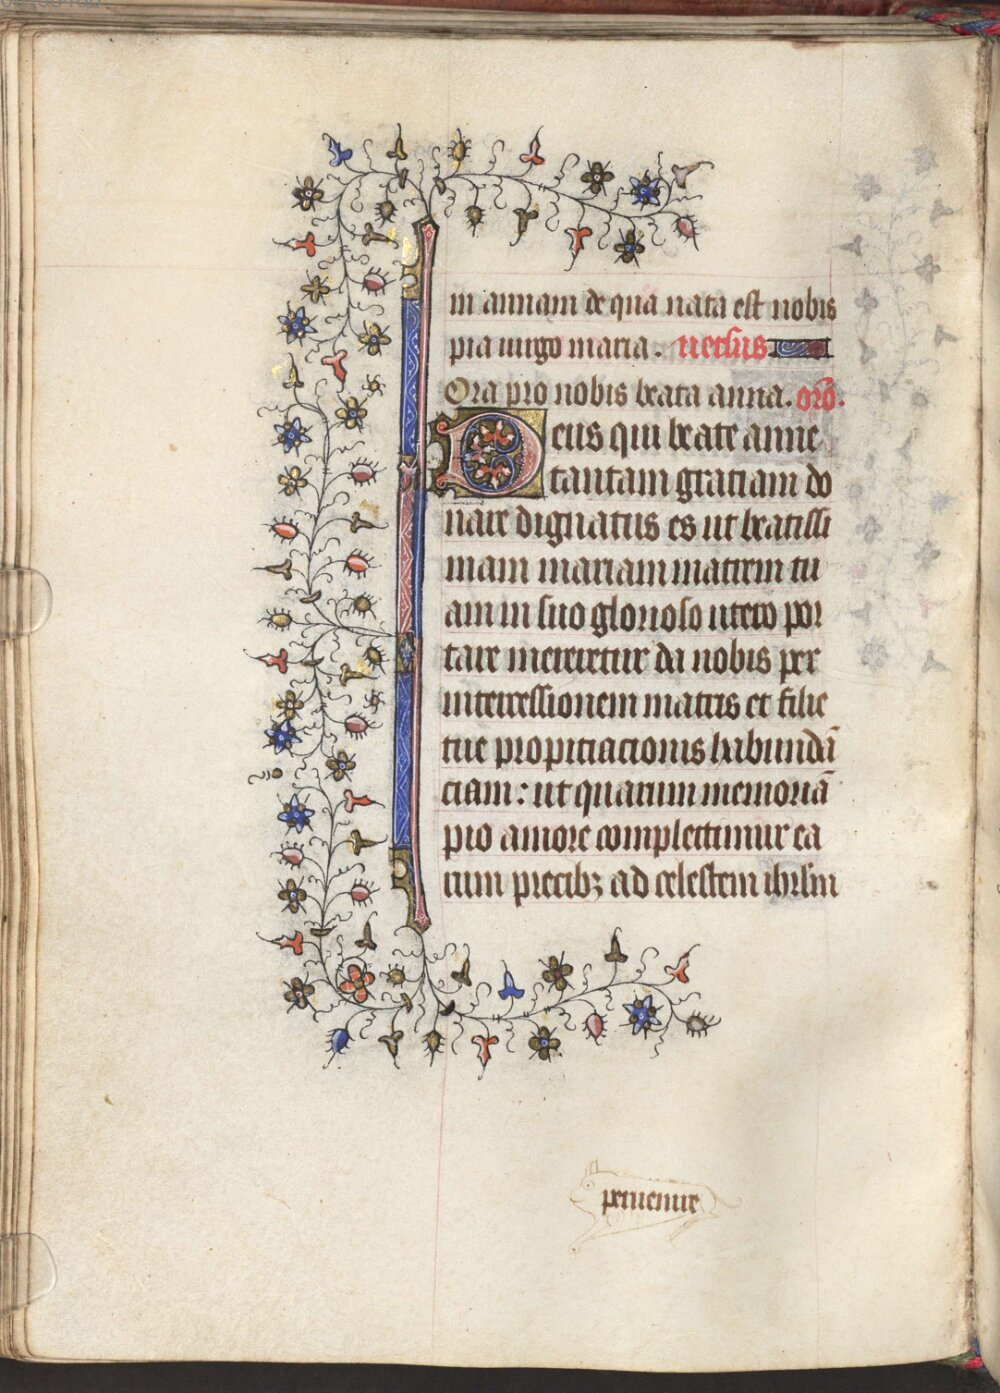 in annam de qua nata est nobis
pia uirgo maria. uersus
Ora pro nobis beata anna. orō.
Deus qui beate anne
tantam gratiam do
nare dignatus es ut beatissi
mam mariam matrem tu
am in suo glorioso utero por
tare mereretur da nobis per
intercessionem matris et filie
tue propiciacionis habundā
ciam: ut quarum memoriā
pio amore complectimur ea
rum precibꝫ ad celestem ihrlm
peruenire